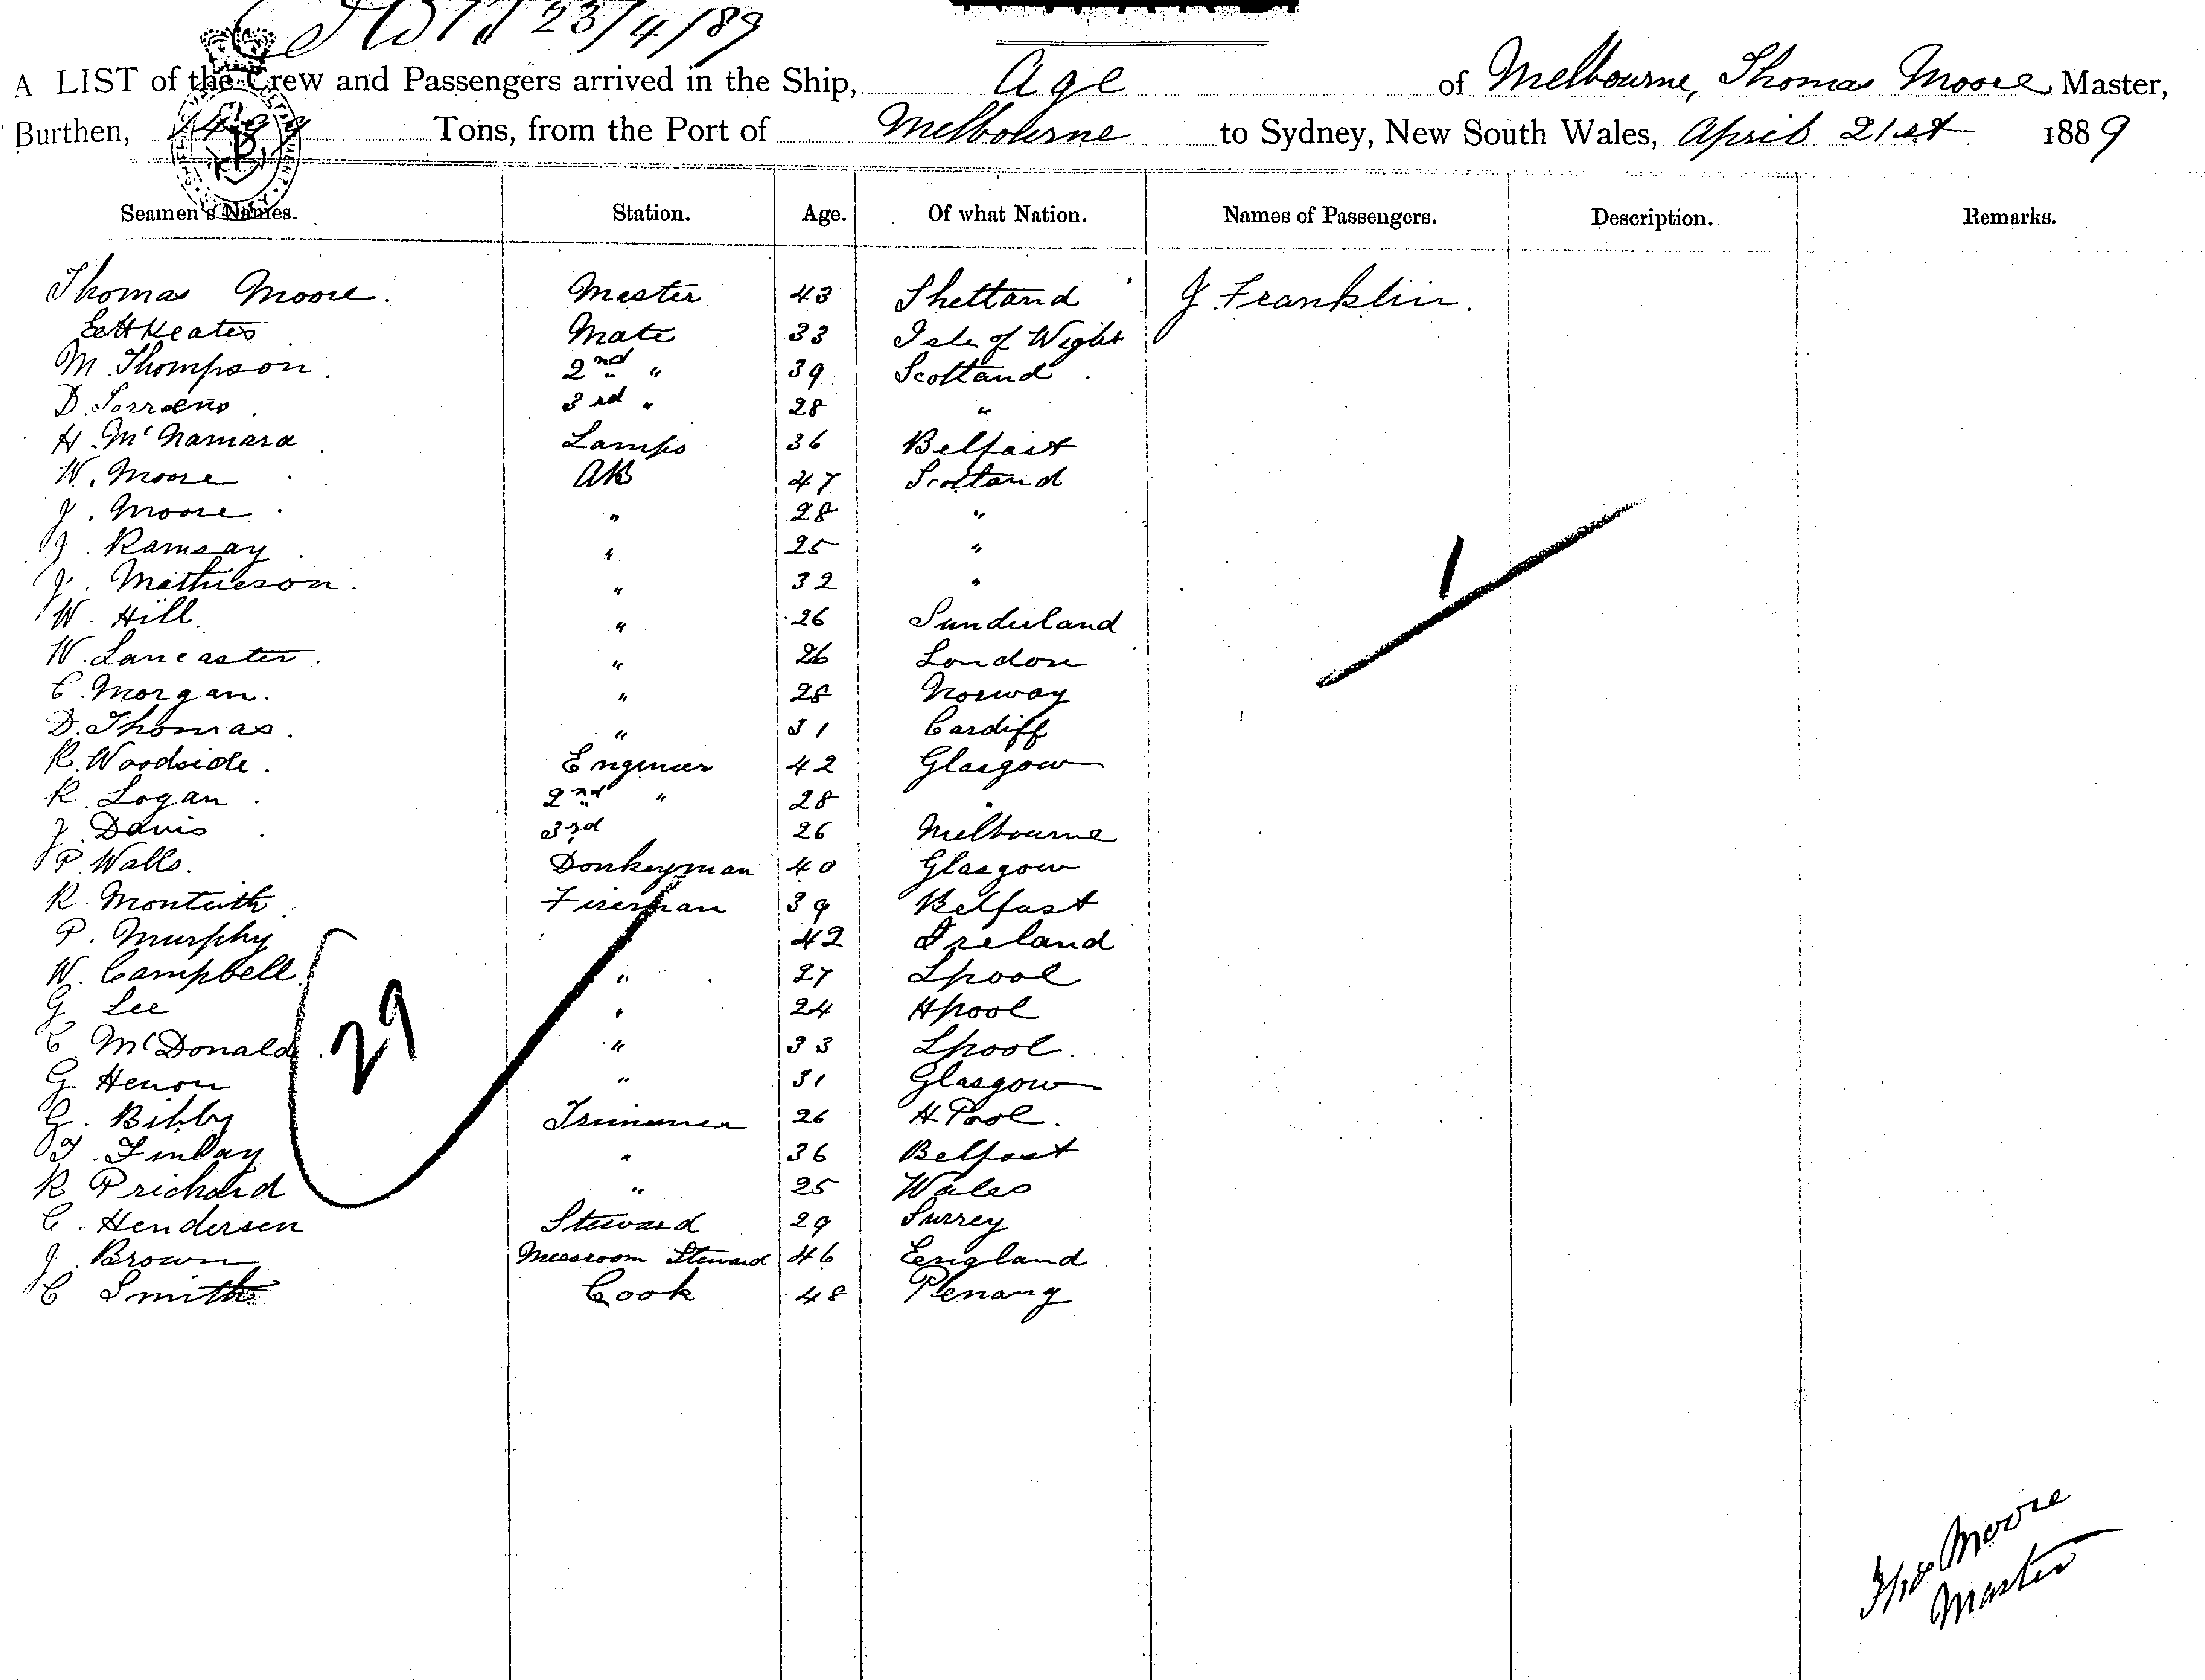 23/4/89
A LIST of the Crew and Passengers arrived in the Ship, Age of Melbourne, Thomas Moore Master,
Burthen, Tons, from the Port of Melbourne to Sydney, New South Wales, April 21st 1889
Seamen's Names. Station. Age. Of what Nation. Names of Passengers. Description. Remarks.
Thomas Moore. Master 43 Shetland J Franklin.
Keates Mate 33 Isle of Wight
M. Thompson. 2nd " 39 Scotland
D. 3rd " 28 "
H. McNamara Lamps 36 Belfast
W. Moore AB 47 Scotland
J. Moore " 28 "
J. Ramsay " 25 "
J. Mathieson. " 32 "
W. Hill. " 26 Sunderland
W. Lancaster. " 26 London
C. Morgan. " 28 Norway
D. Thomas. " 31 Cardiff
R. Woodside. Engineer 42 Glasgow
R. Logan. 2nd " 28 "
J. Davis 3rd 26 Melbourne
P. Walls. Donkeyman 40 Glasgow
R. Monteith Fireman 39 Belfast
P. Murphy 42 Ireland
W. Campbell. " 27 Lpool
G Lee " 24 Hpool
C McDonald. " 33 Lpool.
G. Heron " 31 Glasgow
G. Bibby Trimmer 26 H.Pool.
T. Finlay " 36 Belfast
R Prichard " 25 Wales
C. Hendersen Steward 29 Surrey
J. Brown Messroom Steward 46 England
C Smith Cook 48 Penang
29
1
Thos Moore
Master